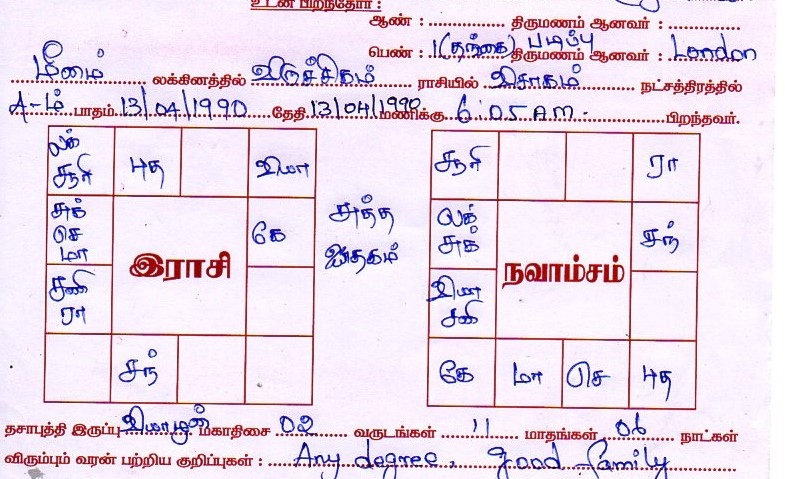 உடன் பிறந்தோர் :
ஆண் : திருமணம் ஆனவர் :
பெண் : 1 (தங்கை) படிப்பு திருமணம் ஆனவர் : London
மீனம் லக்கினத்தில் விருச்சிகம் ராசியில் விசாகம் நட்சத்திரத்தில்
4-ம் பாதம் 13/04/1990 தேதி 13/04/1990 மணிக்கு 6:05 A.M. பிறந்தவர்.
லக் சூரி புத வியா
சூரி ரா
சுக் செ மா கே
லக் சுக் சந்
இராசி
நவாம்சம்
சனி ரா
வியா சனி
சந்
கே மா செ புத
ஜாதகம்
தசாபுத்தி இருப்பு வியாழன் மகாதிசை 02 வருடங்கள் 11 மாதங்கள் 06 நாட்கள்
விரும்பும் வரன் பற்றிய குறிப்புகள் : Any degree, good family